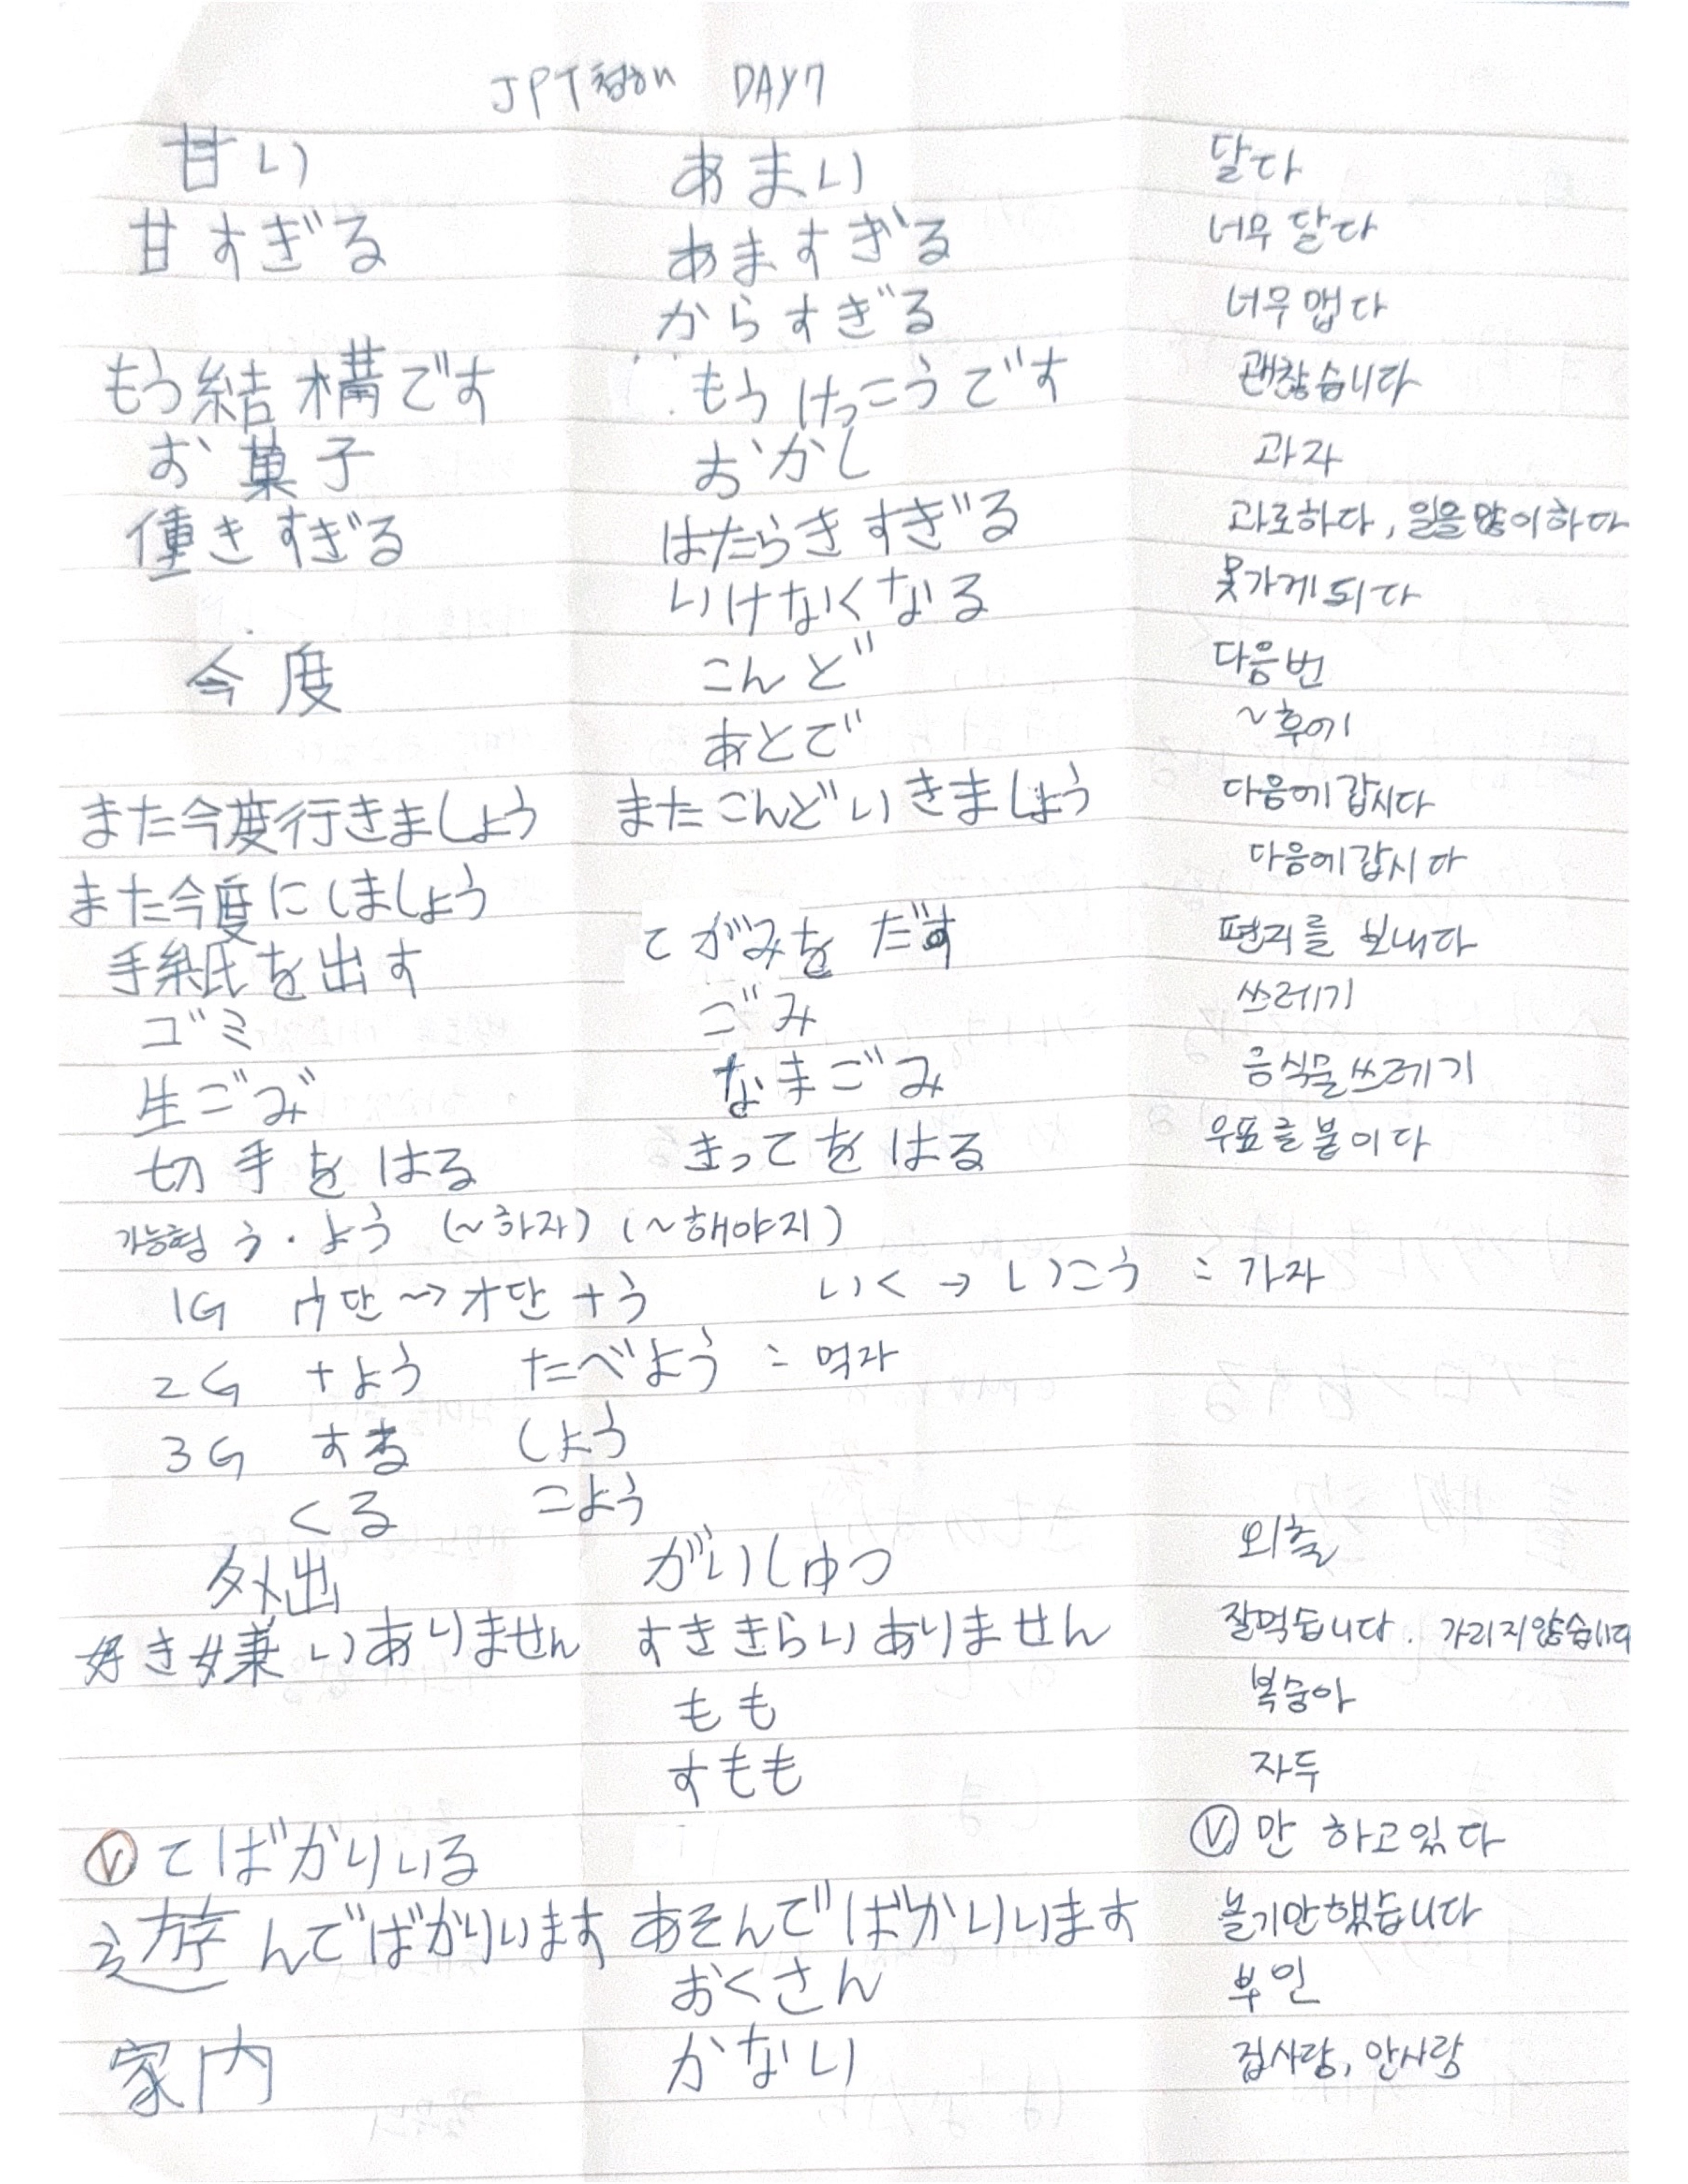 JPT청해 DAY7
甘い あまい 달다
甘すぎる あますぎる 너무 달다
からすぎる 너무 맵다
もう結構です もうけっこうです 괜찮습니다
お菓子 おかし 과자
働きすぎる はたらきすぎる 과로하다, 일을 많이하다
いけなくなる 못가게 되다
今度 こんど 다음번
あとで ~후에
また今度行きましょう またこんどいきましょう 다음에 갑시다
また今度にしましょう 다음에 갑시다
手紙を出す てがみをだす 편지를 보내다
ゴミ ごみ 쓰레기
生ごみ なまごみ 음식물쓰레기
切手をはる きってをはる 우표를 붙이다
가능형 う・よう (~하자) (~해야지)
1G ウ단 → オ단 + う いく → いこう = 가자
2G + よう たべよう = 먹자
3G する しよう
くる こよう
外出 がいしゅつ 외출
好き嫌いありません すききらいありません 잘먹습니다. 가리지않습니다
もも 복숭아
すもも 자두
Ⓥ てばかりいる Ⓥ 만 하고있다
遊んでばかりいます あそんでばかりいます 놀기만했습니다
おくさん 부인
家内 かない 집사람, 안사람